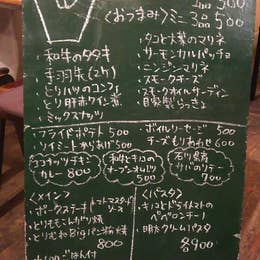 3品500
<おつまみ>ミニ3品500
・タコと大葉のマリネ
・サーモンカルパッチョ
・ニンジンマリネ
・スモークチーズ
・スモークオイルサーディン
・自家製らっきょ
・和牛のタタキ
・手羽先(2ケ)
・とりハツのコンフィ
・とり肝赤ワイン煮
・ミックスナッツ
・フライドポテト 500
・ソイミートからあげ 500
・ボイルソーセージ 500
・チーズもりあわせ 600
ココナッツチキンカレー 800
和牛とキノコのオーブンオムレツ 500
石川県産サバのリテー 700
<メイン>
・ポークステーキ トマトマスタードソース
・とりももこんがり焼
・とりむねBigパン粉焼
800
ごはん付
<パスタ>
・キノコとドライトマトのペペロンチーノ
・明太クリームパスタ
各900